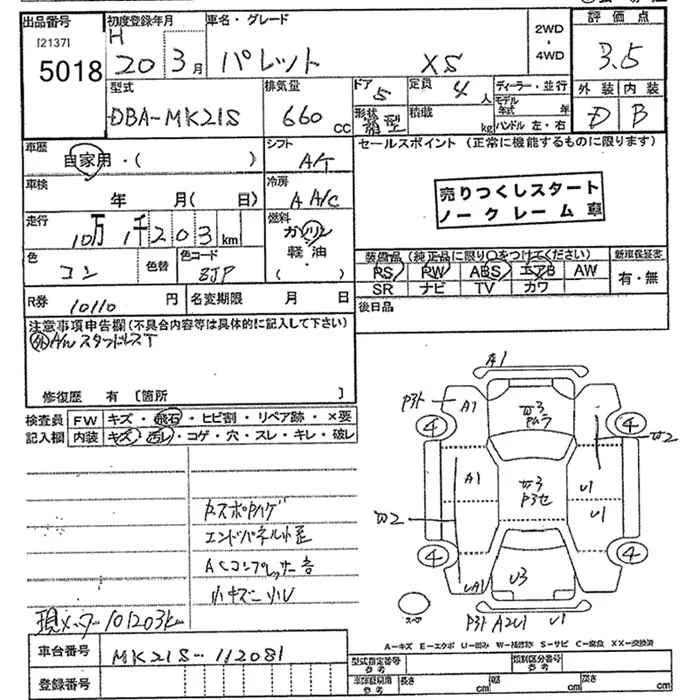 出品番号 初度登録年月 車名・グレード 2WD・4WD 評価点
[2137] H
5018 20 3月 パレット XS 3.5
型式 排気量 ドア 定員 ディーラー・並行 外装 内装
DBA-MK21S 660 CC 5 4人 モデル年式 年 D B
形状 積載 kg ハンドル 左・右
箱型
車歴 シフト セールスポイント (正常に機能するものに限ります)
自家用・( ) A/T
車検 冷房
年 月( 日) A A/C
売りつくしスタート
ノークレーム車
走行 燃料
10万1千203km ガソリン
軽油
( )
色 色替 色コード
コン ZJP
装備品 (純正品に限り○をつけてください) 新車保証書
PS PW ABS エアB AW 有・無
SR ナビ TV カワ
R券 10110 円 名変期限 月 日 後日品
注意事項申告欄 (不具合内容等は具体的に記入して下さい)
修復歴 有 [箇所 ]
検査員 FW キズ・飛石・ヒビ割・リペア跡・×要
記入欄 内装 キズ・汚レ・コゲ・穴・スレ・キレ・破レ
A1
P3ト A1 W3 4 4
W2
A1 W3 U1 U1
W2
4 4
UA1 U3
エンドパネル小歪
ACコンプレッサー音
小キズ 小凹
現メーター101203km
P3ト A2U1 U1
A-キズ E-エクボ U-凹み W-補修跡 S-サビ C-腐食 XX-交換済
車台番号 MK21S-112081
型式指定番号 参考 類別区分番号 参考
登録番号
長さ cm 幅 cm 高さ cm